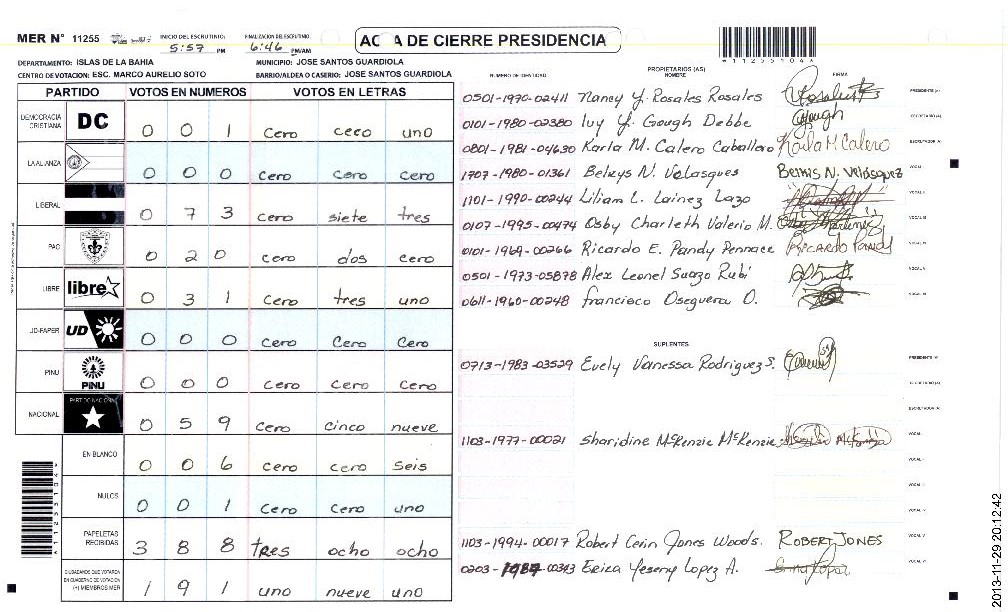 MER N° 11255 INICIO DEL ESCRUTINIO: 5:57 PM FINALIZACION DEL ESCRUTINIO: 6:46 PM/AM ACTA DE CIERRE PRESIDENCIA
*11255104*
DEPARTAMENTO: ISLAS DE LA BAHIA MUNICIPIO: JOSE SANTOS GUARDIOLA
CENTRO DE VOTACION: ESC. MARCO AURELIO SOTO BARRIO/ALDEA O CASERIO: JOSE SANTOS GUARDIOLA
PARTIDO VOTOS EN NUMEROS VOTOS EN LETRAS
DEMOCRACIA CRISTIANA DC 0 0 1 cero cero uno
LA ALIANZA 0 0 0 cero cero cero
LIBERAL 0 7 3 cero siete tres
PAC 0 2 0 cero dos cero
LIBRE libre 0 3 1 cero tres uno
UD-FAPER UD 0 0 0 cero cero cero
PINU PINU 0 0 0 cero cero cero
NACIONAL PARTIDO NACIONAL 0 5 9 cero cinco nueve
EN BLANCO 0 0 6 cero cero seis
NULOS 0 0 1 cero cero uno
PAPELETAS RECIBIDAS 3 8 8 tres ocho ocho
CIUDADANOS QUE VOTARON EN CUADERNO DE VOTACION (+) MIEMBROS MER 1 9 1 uno nueve uno
*11255104*
NUMERO DE IDENTIDAD PROPIETARIOS (AS) NOMBRE FIRMA
0501-1970-02411 Nancy Y. Rosales Rosales PRESIDENTE (A)
0101-1980-02380 Ivy Y. Gough Debbe Gough SECRETARIO (A)
0801-1981-04630 Karla M. Calero Caballero Karla M Calero ESCRUTADOR (A)
1707-1980-01361 Belkys N. Velasques Belkis N. Velásquez VOCAL I
1101-1990-00244 Liliam L. Lainez Lazo VOCAL II
0107-1995-00474 Osby Charleth Valerio M. VOCAL III
0101-1969-00266 Ricardo E. Pandy Pennace Ricardo Pandy VOCAL IV
0501-1973-05878 Alex Leonel Suazo Rubi VOCAL V
0611-1960-00248 francisco Oseguera O. VOCAL VI
SUPLENTES
0713-1983-03529 Evely Vanessa Rodriguez S. PRESIDENTE (A)
SECRETARIO (A)
ESCRUTADOR (A)
1103-1977-00021 Sharidine McKenzie McKenzie VOCAL I
VOCAL II
VOCAL III
VOCAL IV
1103-1994-00017 Robert Cerin Jones Woods. ROBERT JONES VOCAL V
0203-1987-00343 Erica Yeseny Lopez A. VOCAL VI
2013-11-29 20:12:42